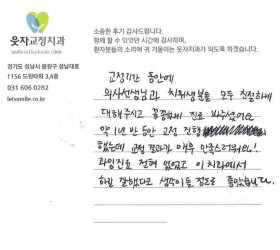 웃자교정치과
smile orthodontic clinic
경기도 성남시 중원구 성남대로
1156 도원타워 3,4층
031 606 0282
letssmile.co.kr
소중한 후기 감사드립니다.
함께 할 수 있었던 시간에 감사하며,
환자분들의 소리에 귀 기울이는 웃자교정치과가 되도록 하겠습니다.
교정기간 동안에
의사선생님과 치위생분들 모두 친절하게
대해주시고 꼼꼼하게 진료 봐주셨어요
약 1년 반 동안 교정 진행
했는데 교정 결과가 매우 만족스러워요!
과잉진료 전혀 없었고 이 치과에서
하길 잘했다고 생각이 들 정도로 좋았습니다.